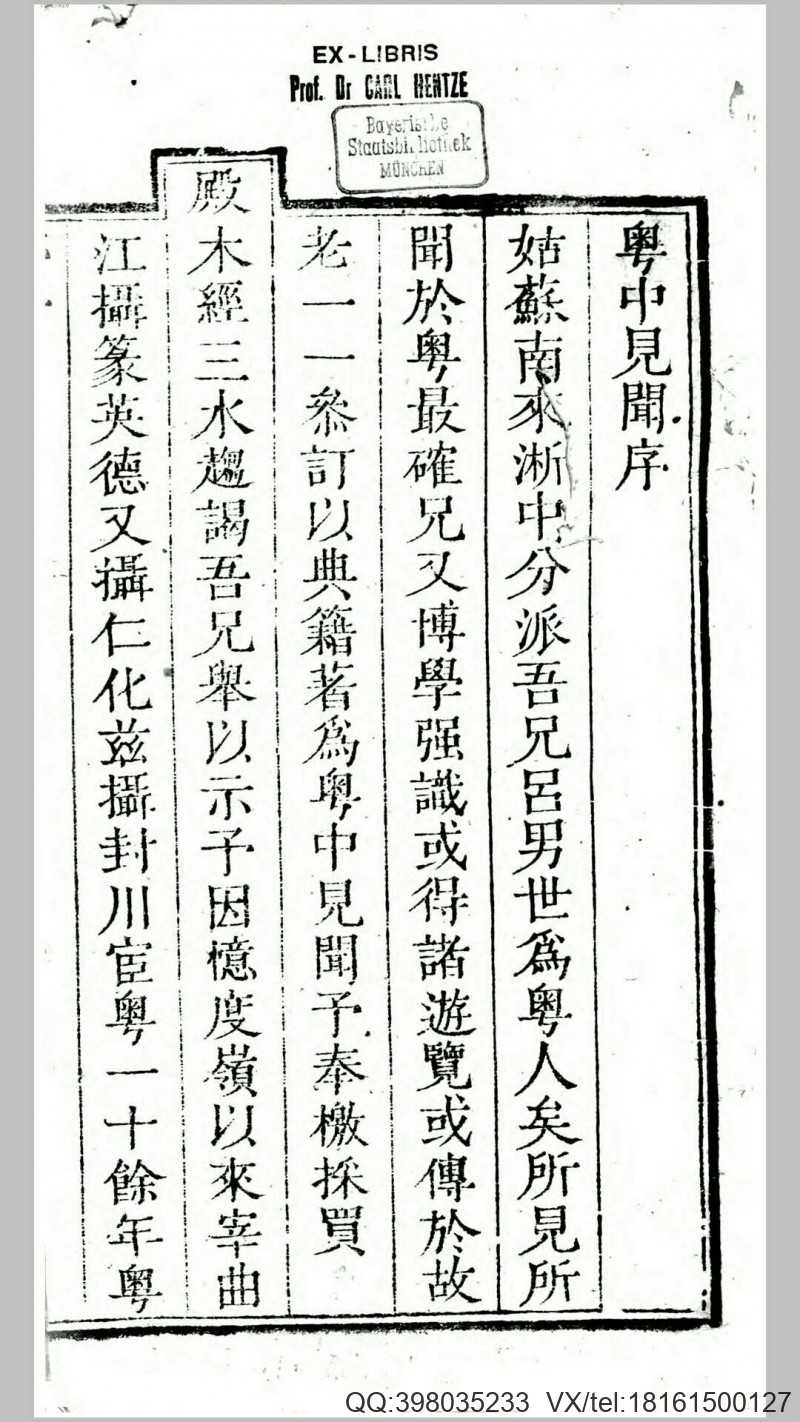 EX-LIBRIS
Prof. Dr CARL HENTZE
Bayerische
Staatsbibliothek
MÜNCHEN
粤中見聞序
姑蘇南來淅中分派吾兄呂男世爲粤人矣所見所
聞於粤最確兄又博學强識或得諸遊覽或傳於故
老一一叅訂以典籍著爲粤中見聞予奉檄採買
殿木經三水趨謁吾兄舉以示予因憶度嶺以來宰曲
江攝篆英德又攝仁化兹攝封川宦粤一十餘年粤
QQ:398035233 VX/tel:18161500127